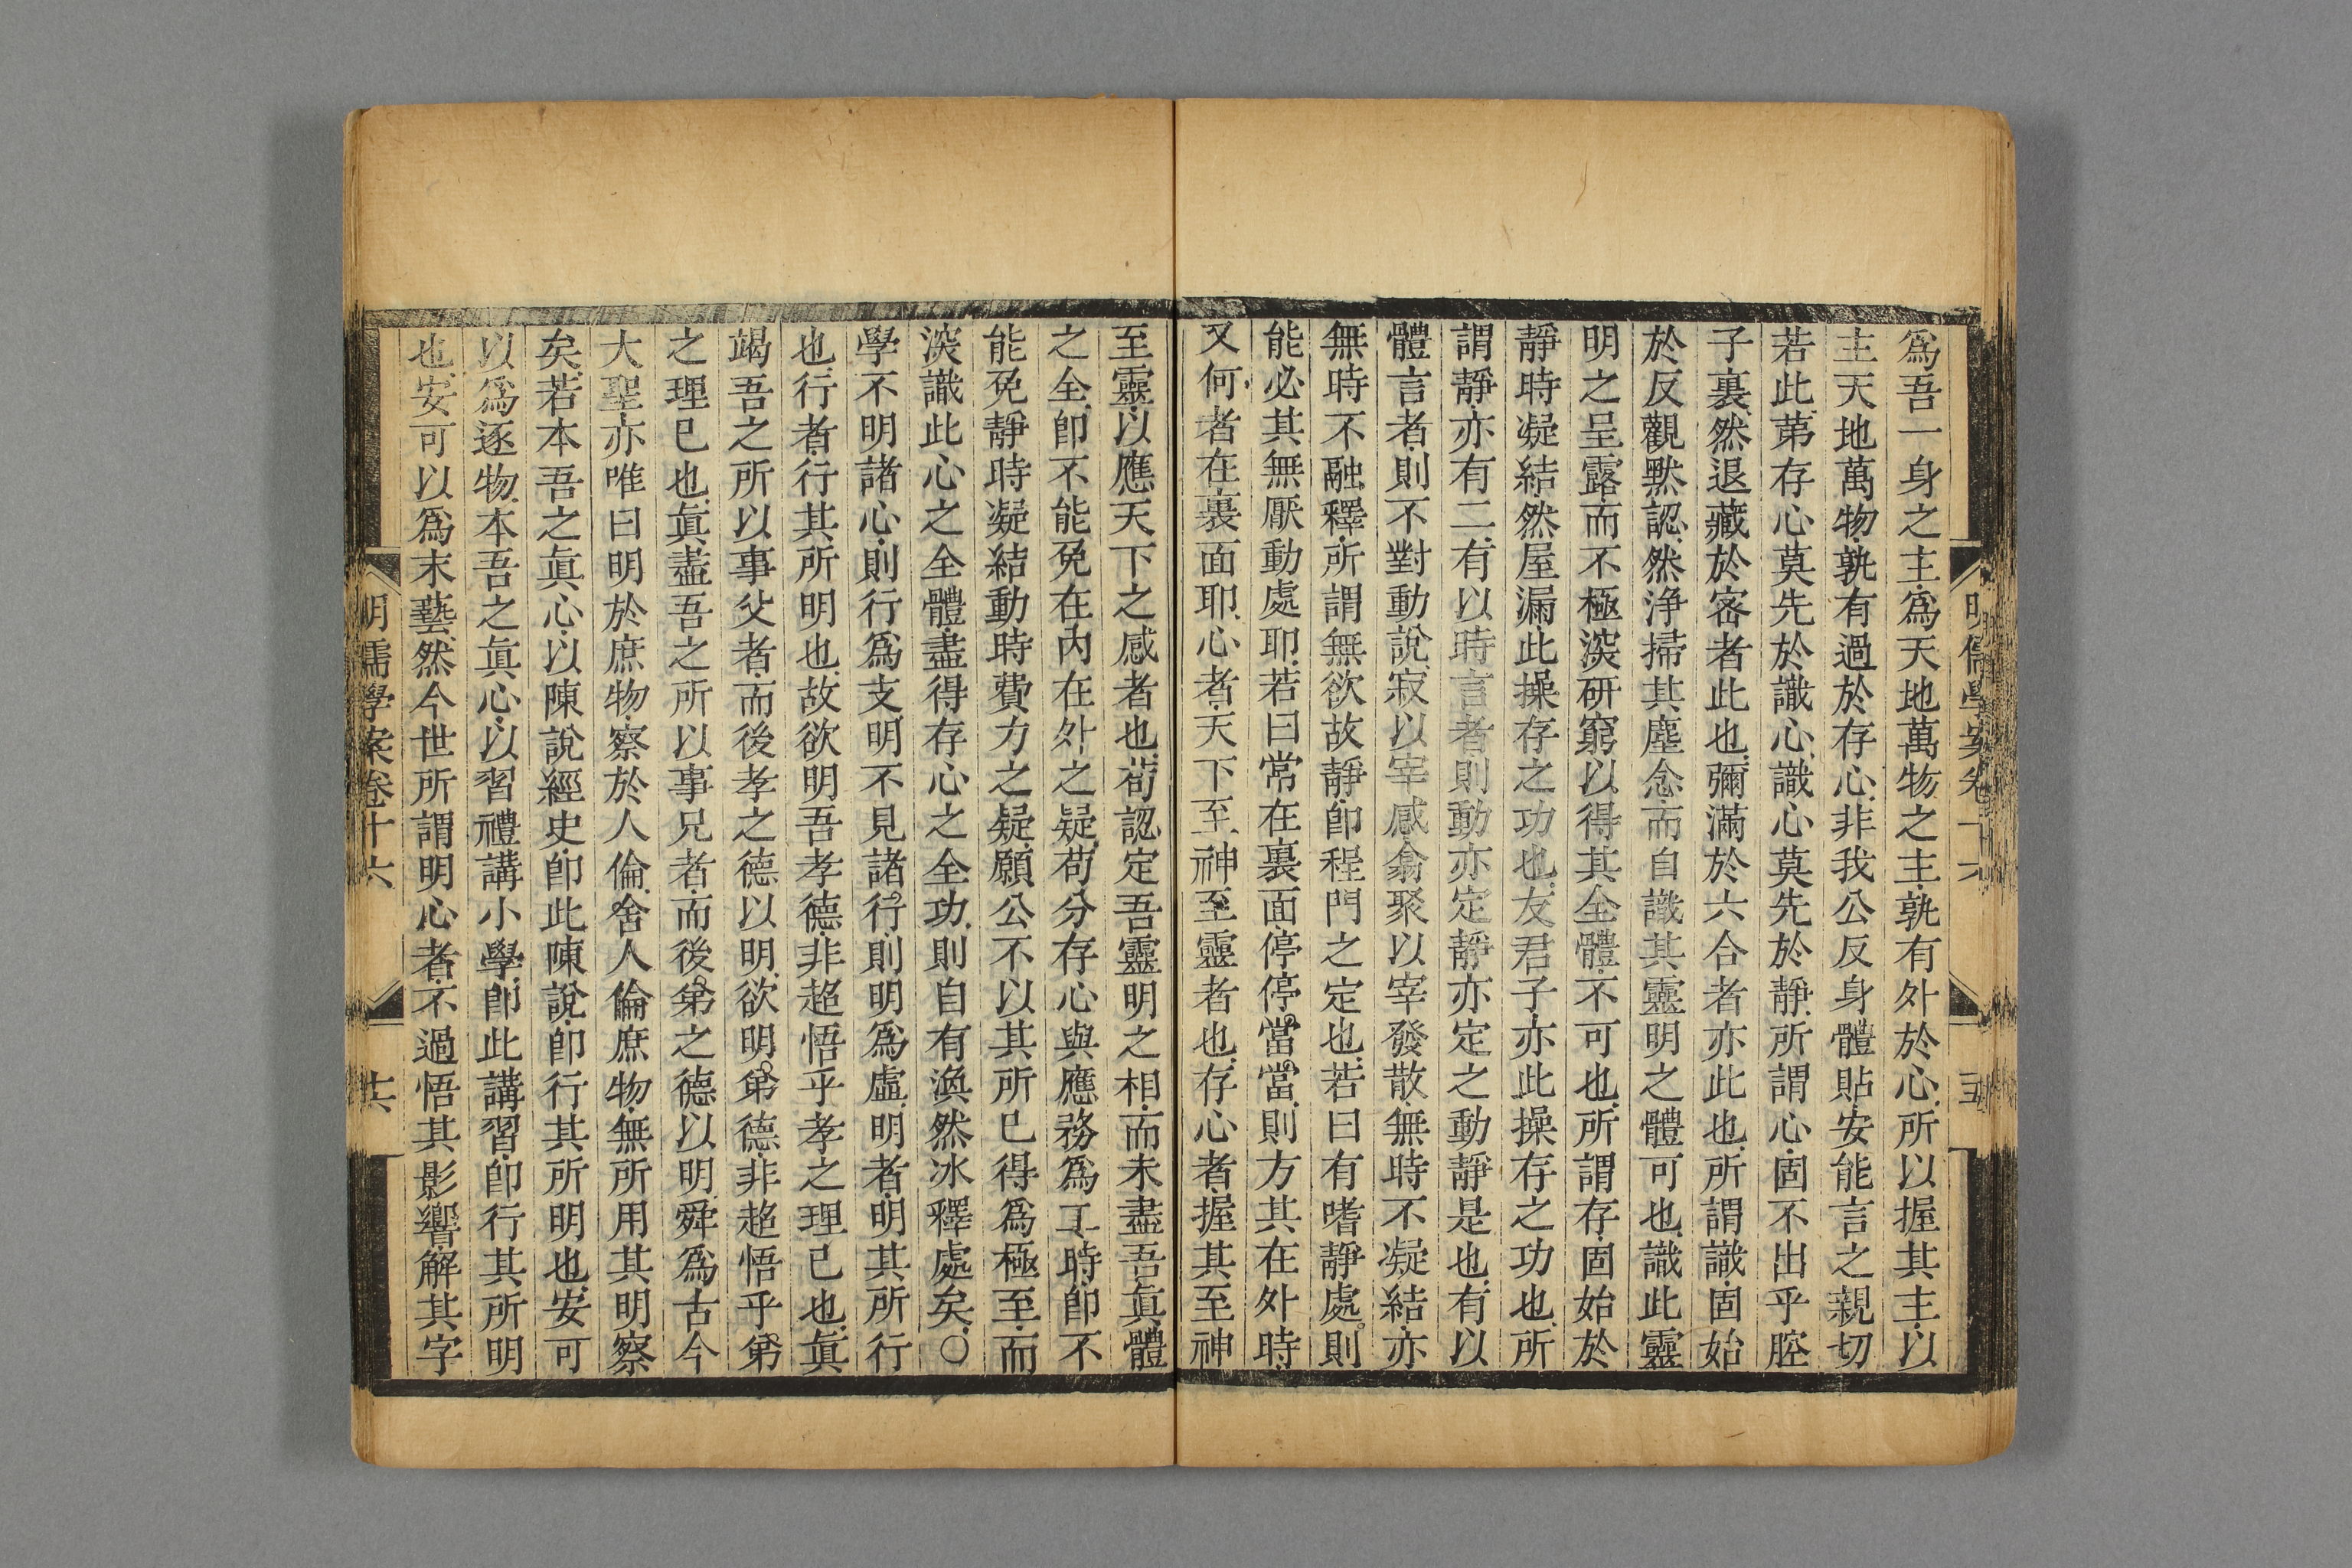 明儒學案卷十六
五
爲吾一身之主爲天地萬物之主孰有外於心所以握其主以
主天地萬物孰有過於存心非我公反身體貼安能言之親切
若此苐存心莫先於識心識心莫先於靜所謂心固不出乎腔
子裏然退藏於宻者此也彌滿於六合者亦此也所謂識固始
於反觀默認然浄掃其塵念而自識其靈明之體可也識此靈
明之呈露而不極深研窮以得其全體不可也所謂存固始於
靜時凝結然屋漏此操存之功也友君子亦此操存之功也所
謂靜亦有二有以時言者則動亦定靜亦定之動靜是也有以
體言者則不對動說寂以宰感翕聚以宰發散無時不凝結亦
無時不融釋所謂無欲故靜卽程門之定也若曰有嗜靜處則
能必其無厭動處耶若曰常在裏面停停當當則方其在外時
又何者在裏面耶心者天下至神至靈者也存心者握其至神
至靈以應天下之感者也茍認定吾靈明之相而未盡吾眞體
之全卽不能免在内在外之疑茍分存心與應務爲二時卽不
能免靜時凝結動時費力之疑願公不以其所已得爲極至而
深識此心之全體盡得存心之全功則自有渙然冰釋處矣〇
學不明諸心則行爲支明不見諸行則明爲虛明者明其所行
也行者行其所明也故欲明吾孝德非超悟乎孝之理已也眞
竭吾之所以事父者而後孝之德以明欲明弟德非超悟乎弟
之理已也眞盡吾之所以事兄者而後弟之德以明舜爲古今
大聖亦唯曰明於庶物察於人倫舍人倫庶物無所用其明察
矣若本吾之眞心以陳說經史卽此陳說卽行其所明也安可
以爲逐物本吾之眞心以習禮講小學卽此講習卽行其所明
也安可以爲末藝然今世所謂明心者不過悟其影響解其字
明儒學案卷十六
共